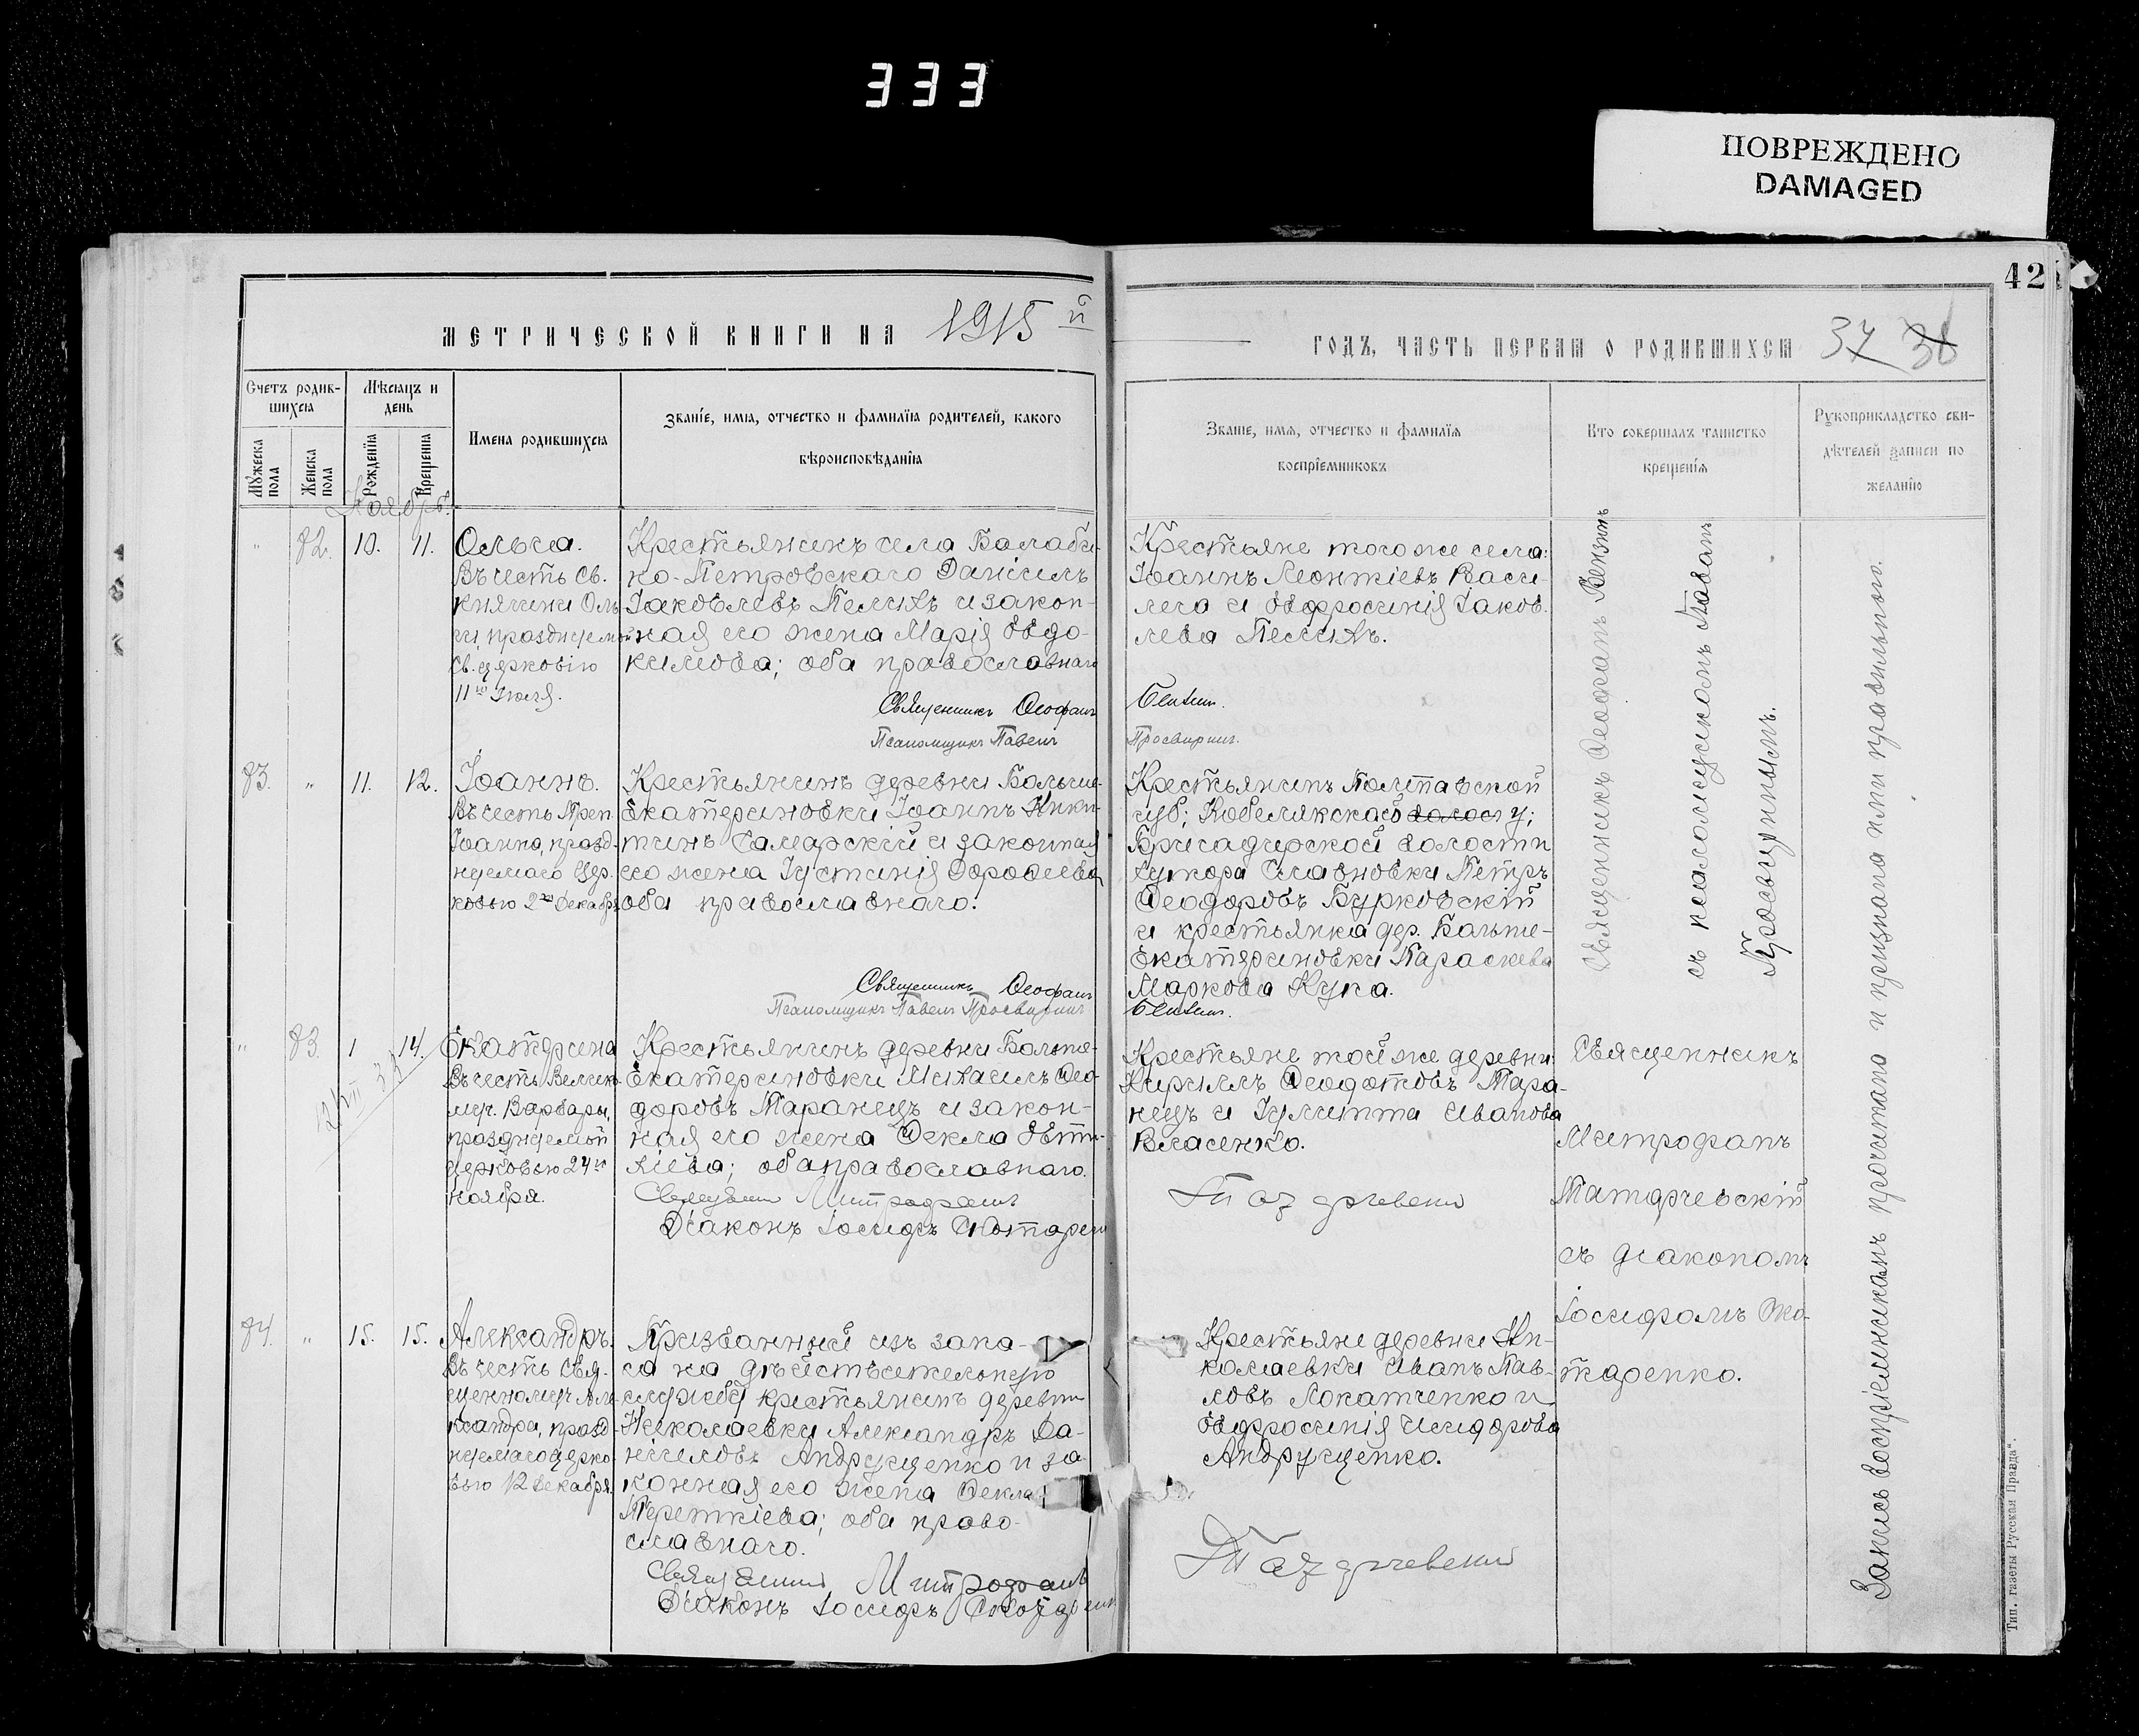 333
ПОВРЕЖДЕНО
DAMAGED
42
МЕТРИЧЕСКОЙ КНИГИ НА 1915 й
ГОДЪ, ЧАСТЬ ПЕРВАЯ О РОДИВШИХСЯ 37 36
Счетъ родив-
шихся
Мѣсяцъ и
день
Мужеска
пола
Женска
пола
Рожденія
Крещенія
Имена родившихся
Званіе, имя, отчество и фамилія родителей, какого
вѣроисповѣданія
Званіе, имя, отчество и фамилія
воспріемниковъ
Кто совершалъ таинство
крещенія
Рукоприкладство сви-
дѣтелей записи по
желанію
Ноябрь.
" 82. 10. 11.
Ольга.
Въ честь св.
княгини Оль-
ги, празднуемой
св. церковію
11го Іюля.
Крестьянинъ села Балаби-
но-Петровскаго Даніилъ
Іаковлевъ Пелихъ и закон-
ная его жена Марія Евдо-
кимова; оба православнаго
Священникъ Ѳеофанъ
Псаломщикъ Павелъ
Крестьяне того же села:
Іоаннъ Леонтіевъ Васи-
лега и Евфросинія Іаков-
лева Пелихъ.
Просвиринъ.
83. " 11. 12.
Іоаннъ.
Въ честь Преп.
Іоанна, празд-
нуемаго цер-
ковью 2го Декабря
Крестьянинъ деревни Больше-
Екатериновки Іоаннъ Ники-
тинъ Самарскій и законная
его жена Іустинія Дороѳеева
оба православнаго.
Священникъ Ѳеофанъ
Псаломщикъ Павелъ Просвиринъ
Крестьянинъ Полтавской
губ; Кобелякскаго волост у;
Бригадировской волости
хутора Славновки Петръ
Ѳеодоровъ Бурковскій
и крестьянка дер. Больше-
Екатериновки Параскева
Маркова Кука.
Священникъ Ѳеофанъ
съ псаломщикомъ Павломъ
Просвиринымъ.
" 83. 1 14.
Екатерина
Въ честь Велик.
муч. Варвары,
празднуемой
церковью 24го
ноября.
Крестьянинъ деревни Больше-
Екатериновки Михаилъ Ѳео-
доровъ Таранецъ и закон-
ная его жена Ѳекла Евти-
хіева; оба православнаго.
Священникъ Митрофанъ
Діаконъ Іосифъ
Крестьяне той же деревни:
Кириллъ Ѳеодотовъ Тара-
нецъ и Іулитта Иванова
Власенко.
Священникъ
Митрофанъ
съ діакономъ
Іосифомъ Ско-
таренко.
84. " 15. 15.
Александръ.
Въ честь Свя-
щенномуч. Але-
ксандра, празд-
нуемаго церко-
вью 12 Декабря.
Призванный изъ запа-
са на дѣйствительную
службу крестьянинъ деревни
Николаевки Александръ Да-
ніиловъ Андрущенко и за-
конная его жена Ѳекла
Терентіева; оба право-
славнаго.
Священникъ Митрофанъ
Діаконъ Іосифъ
Крестьяне деревни Ни-
колаевки Иванъ Пав-
ловъ Локатченко и
Евфросинія Исидорова
Андрущенко.
Запись воспріемникамъ прочитана и признана ими правильною.
Тип. газеты „Русская Правда“.